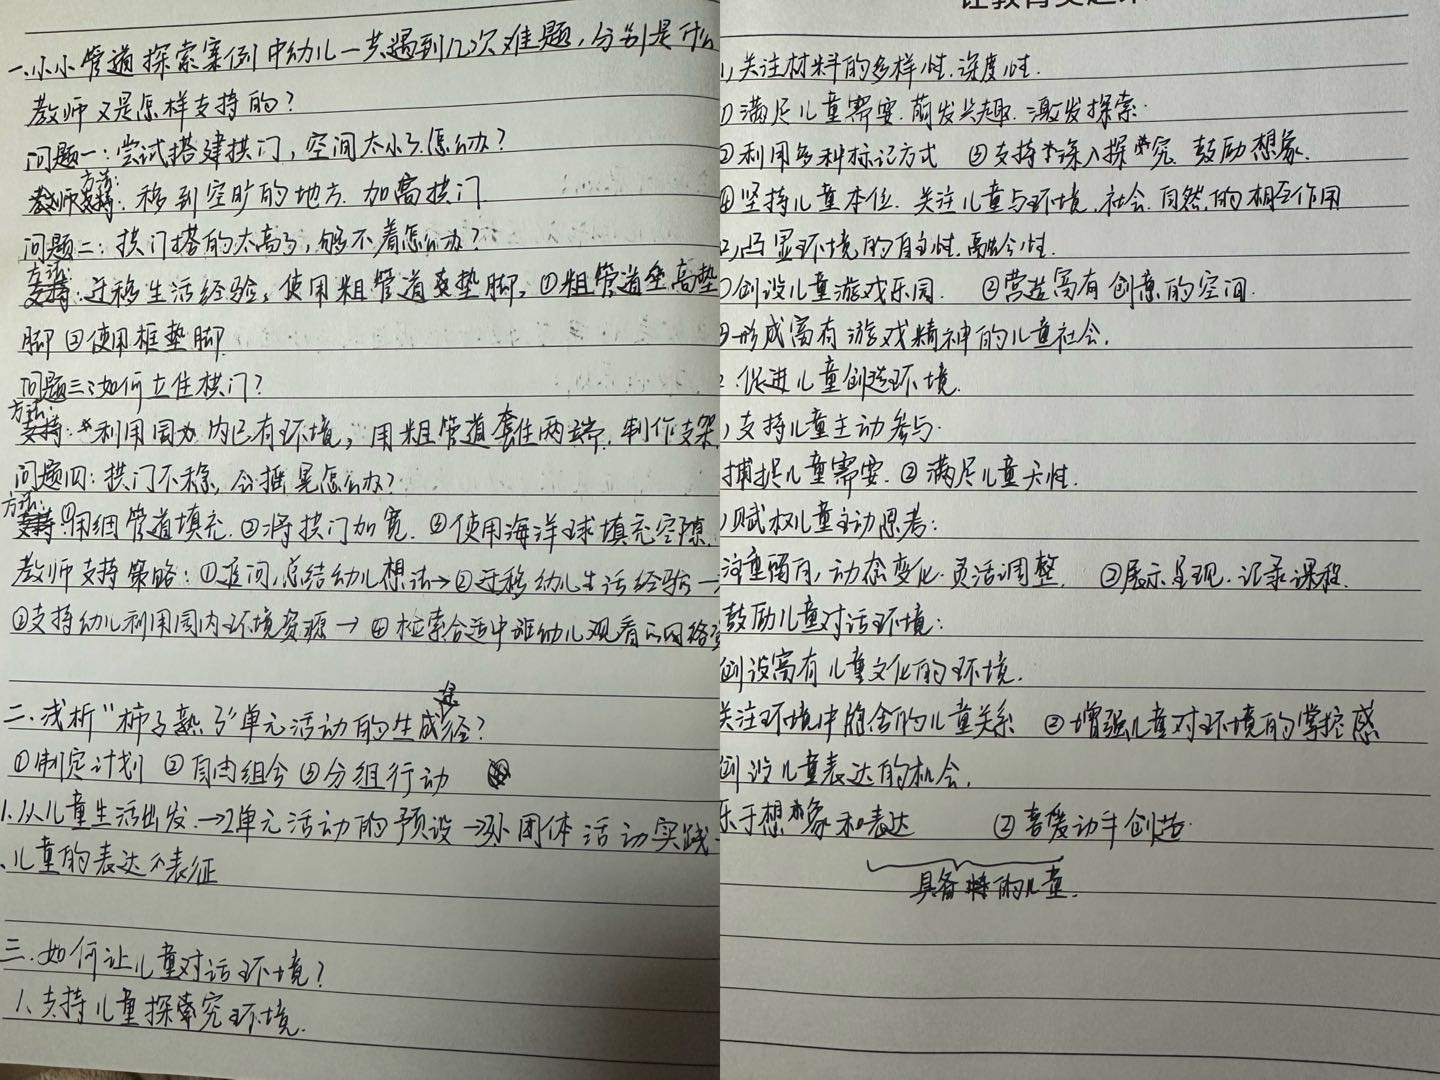 一.小小管道探索案例中幼儿一共遇到几次难题,分别是什么
教师又是怎样支持的?
问题一:尝试搭建拱门,空间太小了怎么办?
方法:
教师支持:移到空旷的地方.加高拱门
问题二:拱门搭的太高了,够不着怎么办?
方法:
支持:迁移生活经验,使用粗管道垫脚,①粗管道垒高垫
脚②使用框垫脚
问题三:如何立住拱门?
方法:
支持:利用园内已有环境,用粗管道套住两端.制作支架
问题四:拱门不稳,会摇晃怎么办?
方法:
支持:①用细管道填充.②将拱门加宽.③使用海洋球填充空隙.
教师支持策略:①追问,总结幼儿想法→②迁移幼儿生活经验→
③支持幼儿利用园内环境资源→④检索合适中班幼儿观看的网络
途
二.浅析"柿子熟了"单元活动的生成径?
①制定计划 ②自由组合③分组行动
1.从儿童生活出发.→2单元活动的预设→3小团体活动实践→
儿童的表达、表征
三.如何让儿童对话环境?
1、支持儿童探究环境.
1,关注材料的多样性.深度性.
①满足儿童需要.萌发兴趣.激发探索.
②利用多种标记方式 ③支持深入探究.鼓励想象.
④坚持儿童本位.关注儿童与环境.社会.自然.的相互作用
2,凸显环境的自主性.融合性.
①创设儿童游戏乐园. ②营造富有创意的空间.
③形成富有游戏精神的儿童社会.
2.促进儿童创造环境.
,支持儿童主动参与.
捕捉儿童需要.②满足儿童天性.
,赋权儿童主动思考:
注重留白,动态变化.灵活调整. ②展示.呈现.记录课程.
鼓励儿童对话环境:
创设富有儿童文化的环境.
关注环境中隐含的儿童关系 ②增强儿童对环境的掌控感
创设儿童表达的机会.
乐于想象和表达 ②喜爱动手创造.
具备 的儿童.